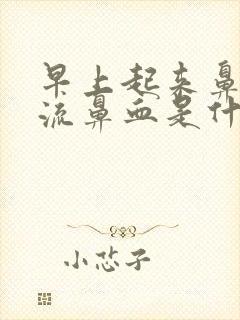 早上起来鼻
流鼻血是什
小芯子